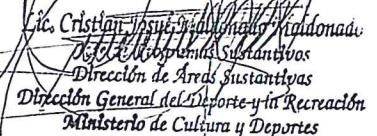 Lic. Cristian Josué Maldonado Maldonado
Programas Sustantivos
Dirección de Áreas Sustantivas
Dirección General del Deporte y la Recreación
Ministerio de Cultura y Deportes